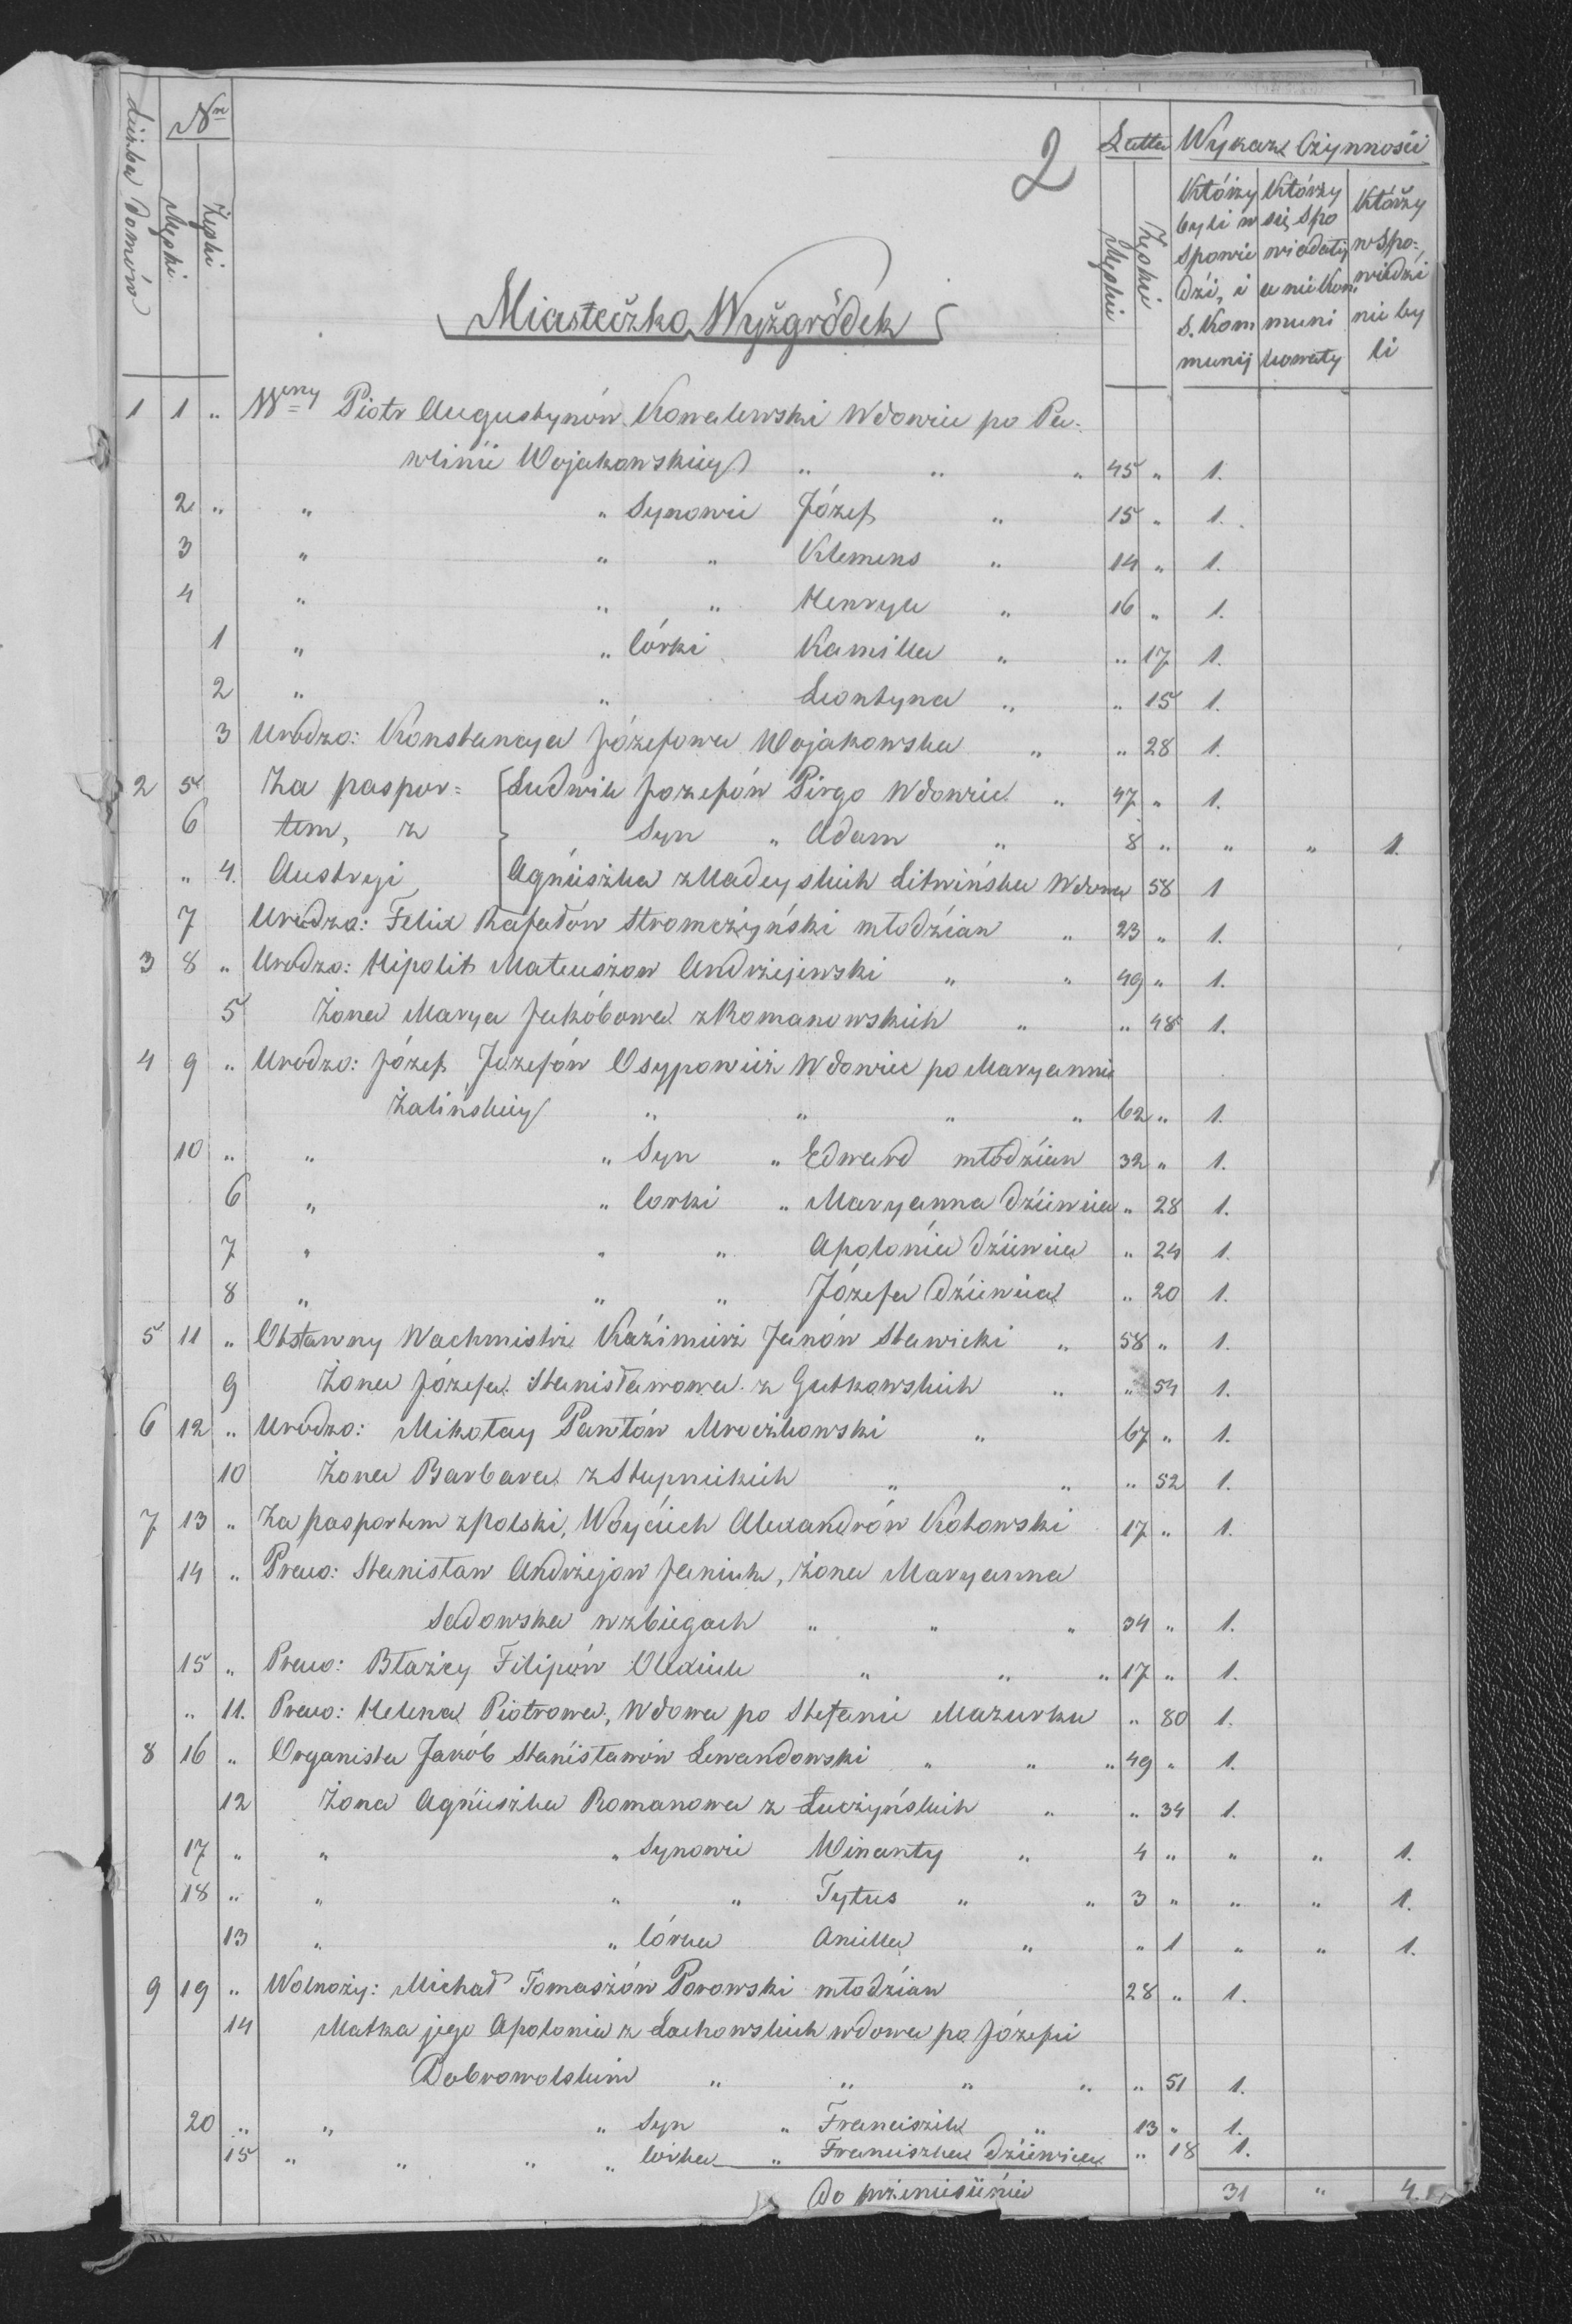 2
Liczba Domów
Nro
Męski
Żeski
Latta
Męskie
Żeskie
Wykaz Czynności
Którzy byli w Spowie dzi, i S. Kom munij
Którzy się Spo wiadaly a nie Kom muni kowały
Którzy w Spo= wiedzi nie by li
Miasteczko Wyżgródek
1 1 " Wny Piotr Augustynów Kowalewski Wdowiec po Pa=
wlinie Wojakowskiey " " " 45 " 1.
2 " " " Synowie Józef " 15 " 1.
3 " " " Klemens " 14 " 1.
4 " " " Henryk " 16 " 1.
1 " " Córki Kamilla " " 17 1.
2 " " Leontyna " " 15 1.
3 Urodzo: Konstancya Józefowa Wojakowska " " 28 1.
2 5 Za paspor= Ludwik Jozefów Pirgo Wdowiec " 47 " 1.
6 tem, z Syn " Adam " 8 " " " 1.
" 4. Austryi Agnieszka z Madeyskich Litwińska Wdowa 58 1
7 Urodzo: Felix Rafałów Stromczyński młodzian " 23 " 1.
3 8 " Urodzo: Hipolit Mateuszow Andrzejewski " " 49 " 1.
5 Żona Marya Jakóbowa z Romanowskich " " 48 1.
4 9 " Urodzo: Józef Jozefów Osypowicz Wdowiec po Maryannie
Zalinskiey " " " " 62 " 1.
10 " " " Syn " Edward młodzian 32 " 1.
6 " " Corki " Maryanna dziewica " 28 1.
7 " " " Apolonia dziewica " 24 1.
8 " " " Józefa dziewica " 20 1.
5 11 " Obstawny Wachmistrz Kazimierz Janów Sławicki " 58 " 1.
9 Żona Józefa Stanisławowa z Gutkowskich " " 54 1.
6 12 " Urodzo: Mikołay Pawłów Mroczkowski " 67 " 1.
10 Żona Barbara z Słupnickich " " " 52 1.
7 13 " Za pasportem z Polski, Woyciech Alexandrów Kotowski 17 " 1.
14 " Praco: Stanisław Andrzejow Janiuk, żona Maryanna
Sadowska w zbiegach " " " 34 " 1.
15 " Praco: Błażey Filipów Olexiuk " " " 17 " 1.
" 11. Praco: Helena Piotrowa, Wdowa po Stefanie Mazurku " 80 1.
8 16 " Organista Jakób Stanisławów Lewandowski " " " 49 " 1.
12 Żona Agnieszka Romanowa z Łuczyńskich " " 34 1.
17 " " " Synowie Winanty " 4 " " " 1.
18 " " " " Tytus " " 3 " " " 1.
13 " " Córka Aniella " " 1 " " 1.
9 19 " Wolnoży: Michał Tomaszów Porowski młodzian 28 " 1.
14 Matka jego Apolonia z Lachowskich wdowa po Józefie
Dobrowolskim " " " " " 51 1.
20 " " " Syn " Franciszek " 13 " 1.
15 " " " " Córka " Franciszka dziewica " 18 1.
Do przeniesienia 31 " 4.